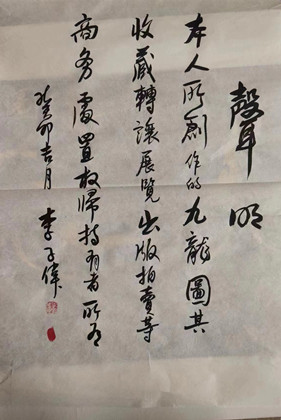 聲明
本人所創作的九龍圖其
收藏轉讓展覽出版拍賣等
商务處置权歸持有者所有
癸卯吉月 李子偉